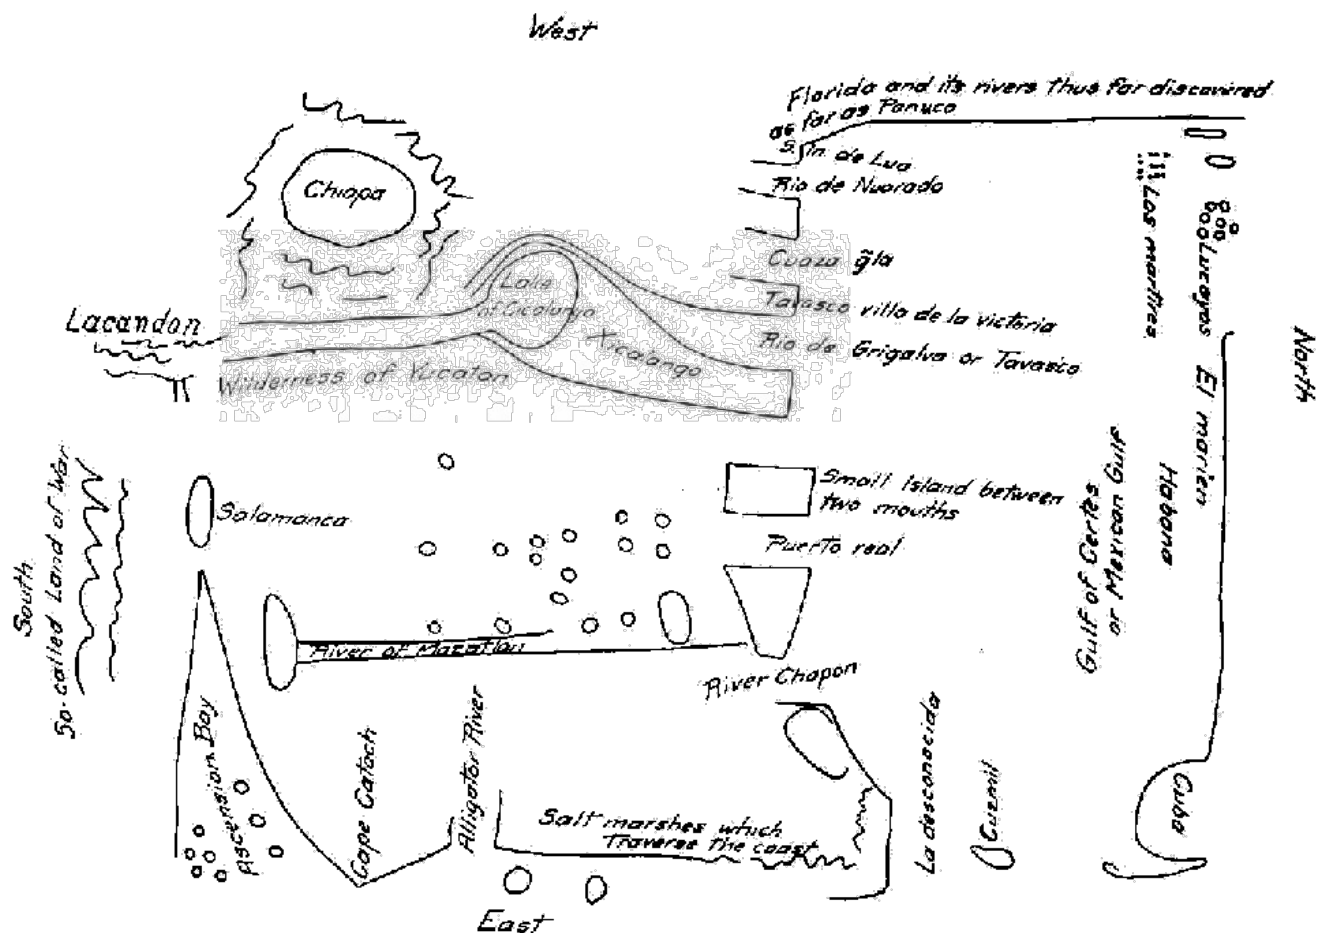 West
Florida and its rivers thus far discovered
as far as Panuco
S. in de Lua
Rio de Nuorado
Chiapa
Cuaza g̃la
Lake
of Cicalango
Tavasco villa de la victoria
Xicalango
Rio de Grigalva or Tavasco
Lacandon
Wilderness of Yucatan
Los martires
Lucayos
El marien
North
Habana
Gulf of Certes
or Mexican Gulf
South
So-called Land of War
Salamanca
Small Island between
two mouths
Puerto real
River of Mazatlan
River Chapon
Ascension Bay
Cape Catoch
Alligator River
Salt marshes which
Traverse the coast
La desconocida
Cuzmil
Cuba
East